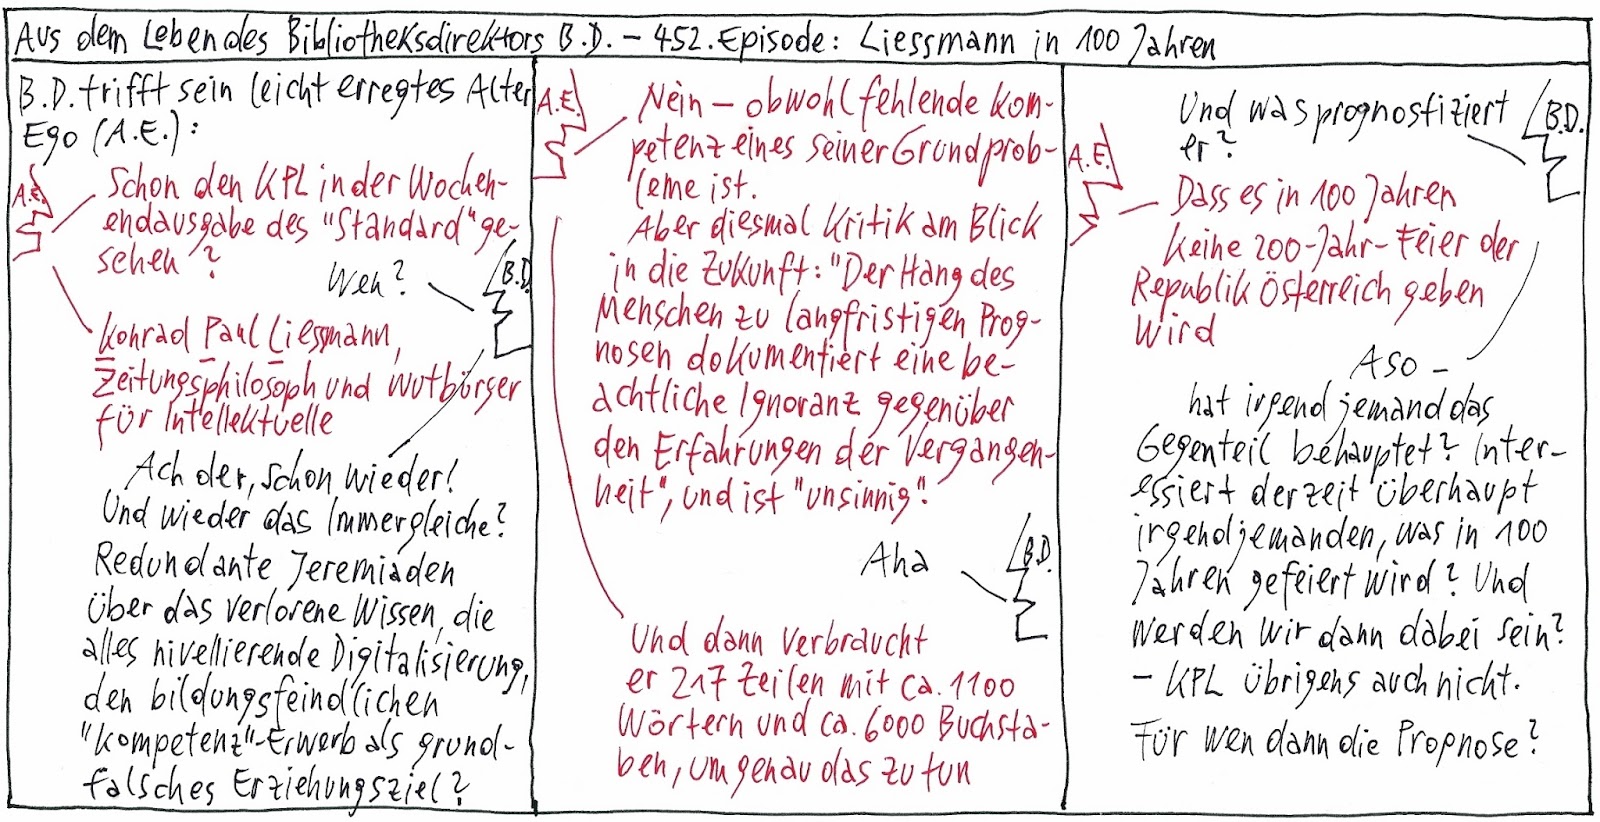 Aus dem Leben des Bibliotheksdirektors B.D. – 452. Episode: Liessmann in 100 Jahren
B.D. trifft sein leicht erregtes Alter
Ego (A.E.):
A.E.
Schon den KPL in der Wochen-
endausgabe des "Standard" ge-
sehen?
Wen?
B.D.
Konrad Paul Liessmann,
Zeitungsphilosoph und Wutbürger
für Intellektuelle
Ach der, schon wieder!
Und wieder das Immergleiche?
Redundante Jeremiaden
über das verlorene Wissen, die
alles nivellierende Digitalisierung,
den bildungsfeindlichen
"Kompetenz"-Erwerb als grund-
falsches Erziehungsziel?
A.E.
Nein – obwohl fehlende Kom-
petenz eines seiner Grundprob-
leme ist.
Aber diesmal Kritik am Blick
in die Zukunft: "Der Hang des
Menschen zu langfristigen Prog-
nosen dokumentiert eine be-
achtliche Ignoranz gegenüber
den Erfahrungen der Vergangen-
heit", und ist "unsinnig".
Aha
B.D.
Und dann verbraucht
er 217 Zeilen mit ca. 1100
Wörtern und ca. 6000 Buchsta-
ben, um genau das zu tun
Und was prognostiziert
er?
B.D.
A.E.
Dass es in 100 Jahren
keine 200-Jahr-Feier der
Republik Österreich geben
wird
Aso –
hat irgend jemand das
Gegenteil behauptet? Inter-
essiert derzeit überhaupt
irgendjemanden, was in 100
Jahren gefeiert wird? Und
werden wir dann dabei sein?
– KPL übrigens auch nicht.
Für wen dann die Propnose?